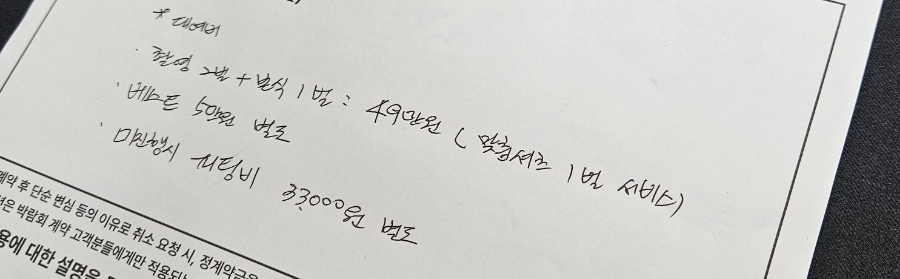 * 대여비
· 촬영 2벌 + 본식 1벌 : 49만원 ( 맞춤셔츠 1벌 서비스)
· 베스트 5만원 별도
· 미진행시 피팅비 33,000원 별도
계약 후 단순 변심 등의 이유로 취소 요청 시, 정계약금은
은 박람회 계약 고객분들에게만 적용되
용에 대한 설명을